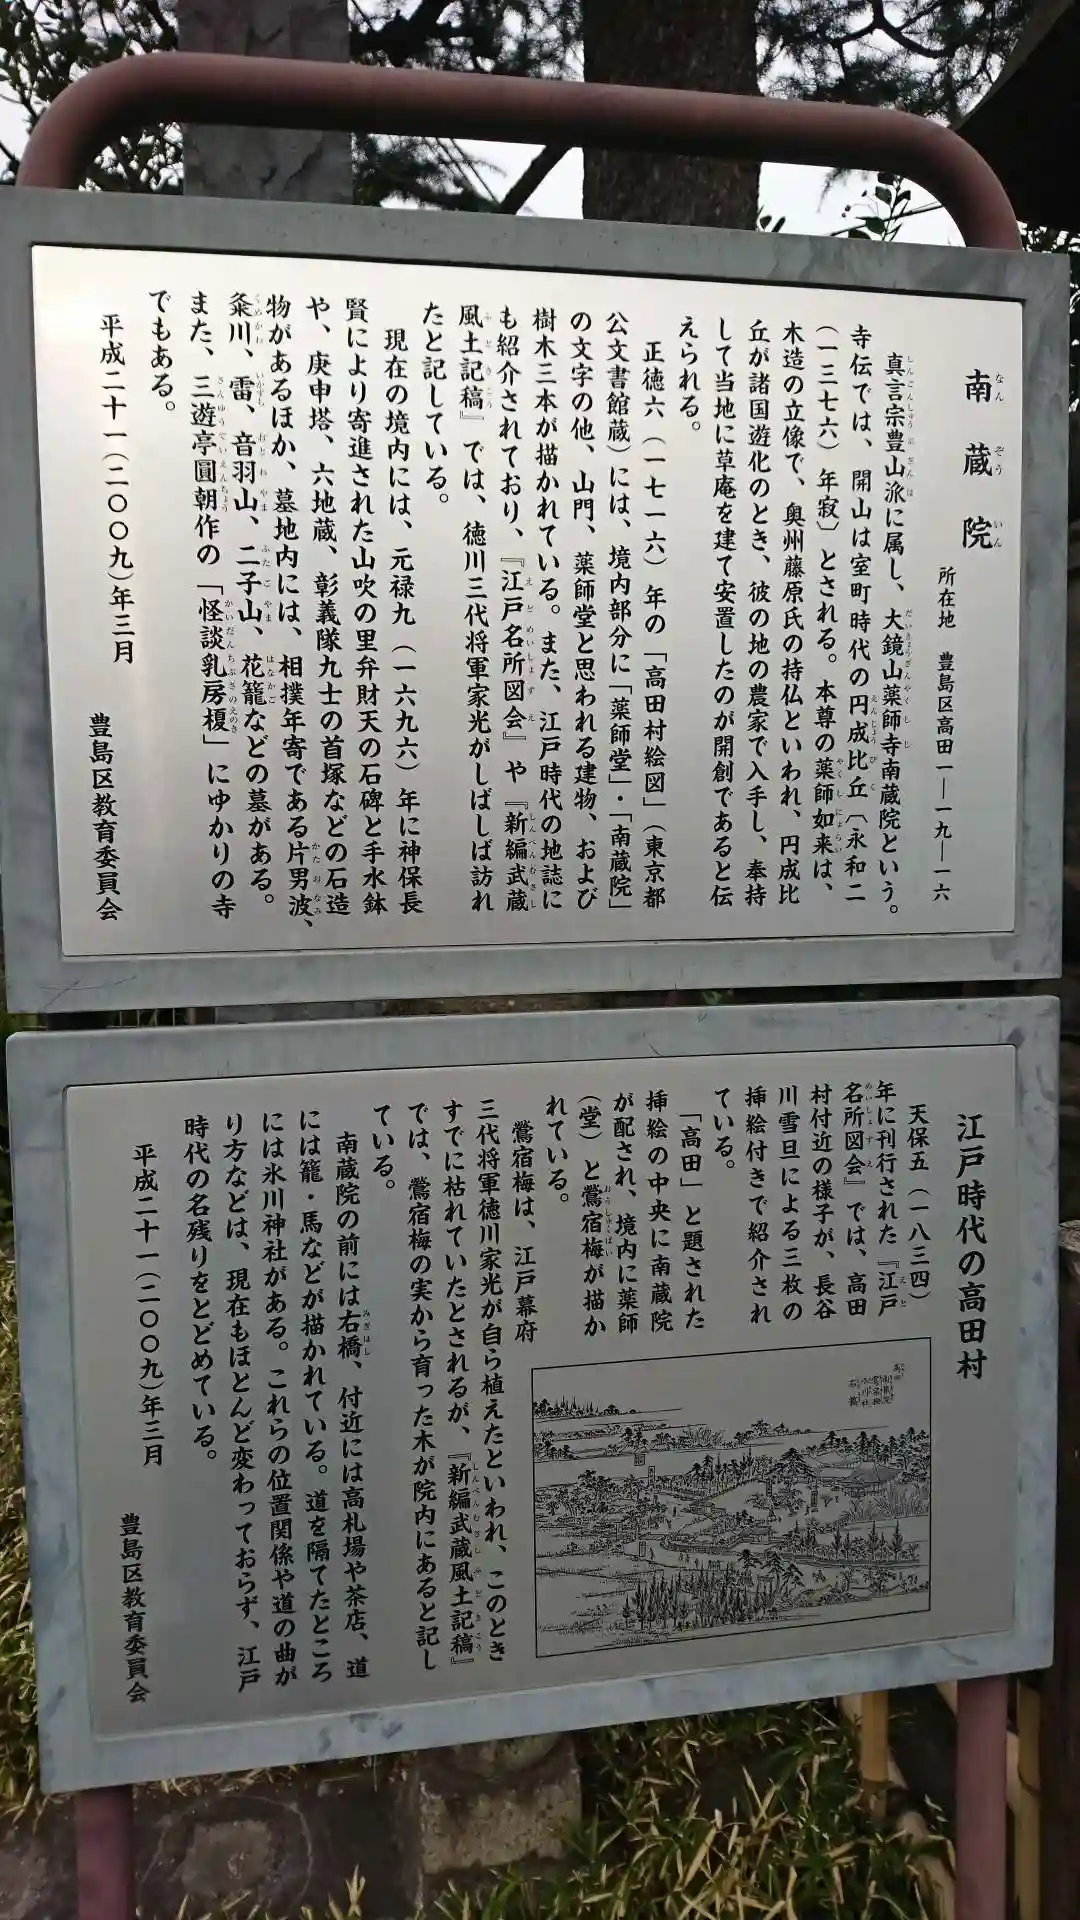 南蔵院
なんぞういん
所在地 豊島区高田一―一九―一六
真言宗豊山派に属し、大鏡山薬師寺南蔵院という。
寺伝では、開山は室町時代の円成比丘〔永和二
(一三七六)年寂〕とされる。本尊の薬師如来は、
木造の立像で、奥州藤原氏の持仏といわれ、円成比
丘が諸国遊化のとき、彼の地の農家で入手し、奉持
して当地に草庵を建て安置したのが開創であると伝
えられる。
正徳六(一七一六)年の「高田村絵図」(東京都
公文書館蔵)には、境内部分に「薬師堂」・「南蔵院」
の文字の他、山門、薬師堂と思われる建物、および
樹木三本が描かれている。また、江戸時代の地誌に
も紹介されており、『江戸名所図会』や『新編武蔵
風土記稿』では、徳川三代将軍家光がしばしば訪れ
たと記している。
現在の境内には、元禄九(一六九六)年に神保長
賢により寄進された山吹の里弁財天の石碑と手水鉢
や、庚申塔、六地蔵、彰義隊九士の首塚などの石造
物があるほか、墓地内には、相撲年寄である片男波、
粂川、雷、音羽山、二子山、花籠などの墓がある。
また、三遊亭圓朝作の「怪談乳房榎」にゆかりの寺
でもある。
平成二十一(二〇〇九)年三月
豊島区教育委員会
江戸時代の高田村
天保五(一八三四)
年に刊行された『江戸
名所図会』では、高田
村付近の様子が、長谷
川雪旦による三枚の
挿絵付きで紹介され
ている。
「高田」と題された
挿絵の中央に南蔵院
が配され、境内に薬師
(堂)と鶯宿梅が描か
れている。
鶯宿梅は、江戸幕府
三代将軍徳川家光が自ら植えたといわれ、このとき
すでに枯れていたとされるが、『新編武蔵風土記稿』
では、鶯宿梅の実から育った木が院内にあると記し
ている。
南蔵院の前には右橋、付近には高札場や茶店、道
には籠・馬などが描かれている。道を隔てたところ
には氷川神社がある。これらの位置関係や道の曲が
り方などは、現在もほとんど変わっておらず、江戸
時代の名残りをとどめている。
平成二十一(二〇〇九)年三月
豊島区教育委員会